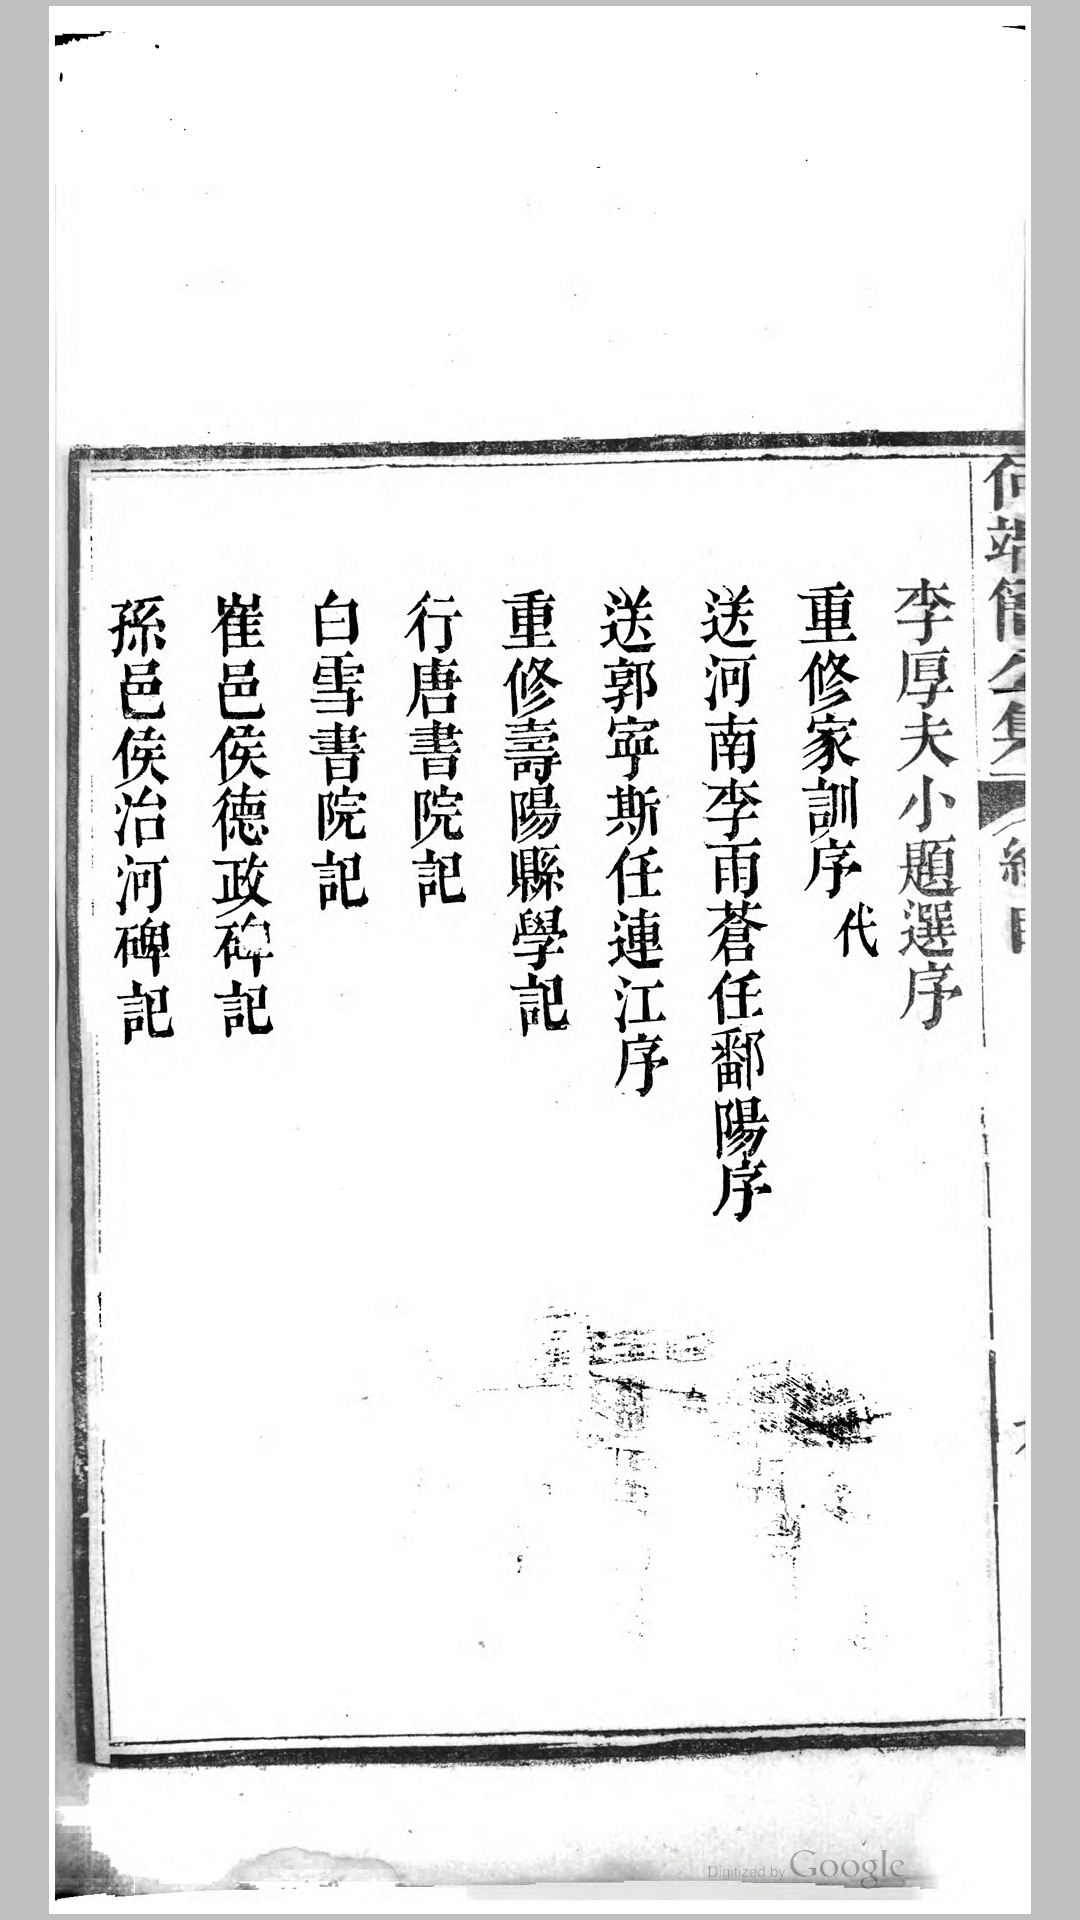 何端簡公集
總目
李厚夫小題選序
重修家訓序 代
送河南李雨蒼任鄱陽序
送郭寧斯任連江序
重修壽陽縣學記
行唐書院記
白雪書院記
崔邑侯德政碑記
孫邑侯治河碑記
Digitized by Google